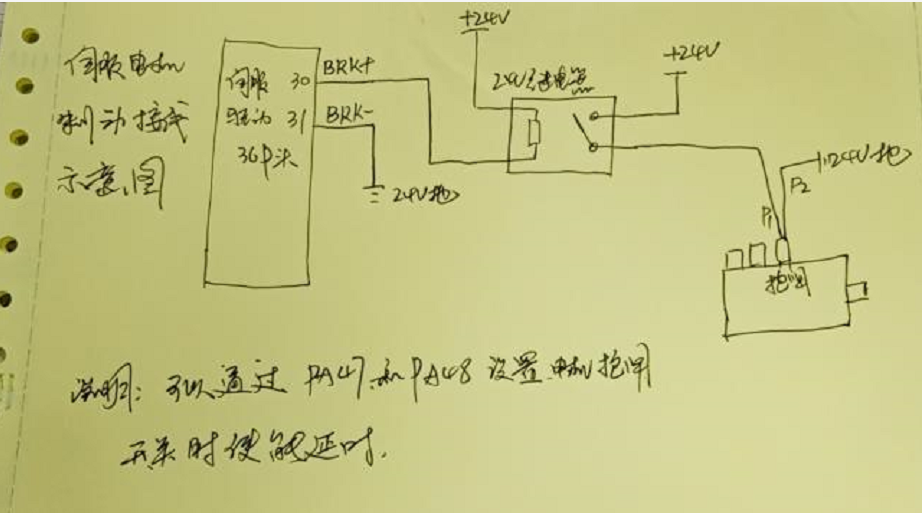 伺服电机
制动接线
示意图
伺服 30
驱动 31
36P头
BRK+
BRK-
24V地
+24V
24V继电器
+24V
24V地
P1
P2
抱闸
说明: 可以通过 PA47 和 PA48 设置电机抱闸
开关时使能延时.